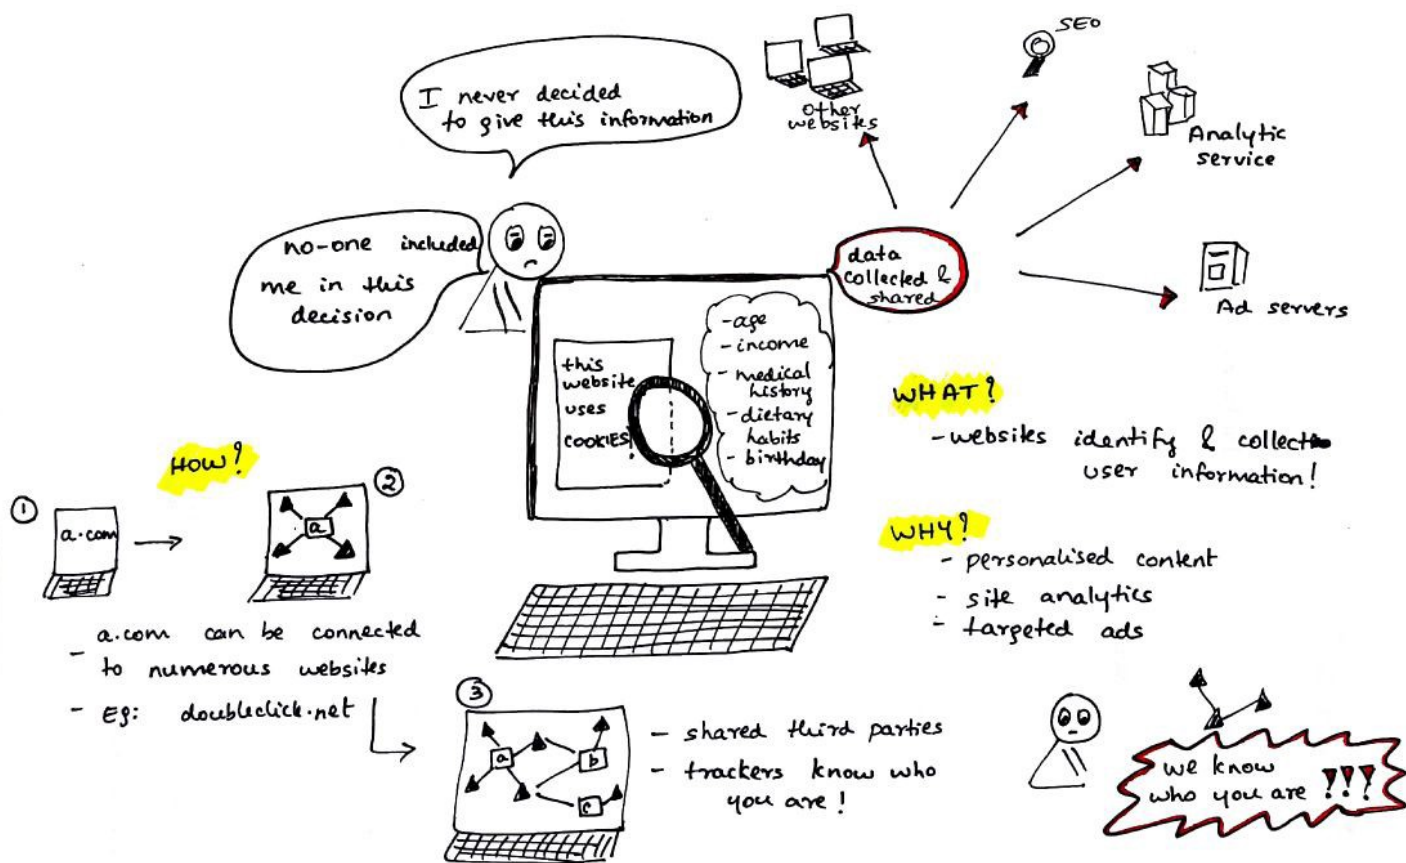 I never decided
to give this information
no-one included
me in this
decision
Other
websites
SEO
Analytic
service
Ad servers
data
collected &
shared
this
website
uses
COOKIES!
- age
- income
- medical
history
- dietary
habits
- birthday
WHAT?
- websites identify & collect
user information!
WHY?
- personalised content
- site analytics
- targeted ads
HOW?
1
a.com
2
a
- a.com can be connected
to numerous websites
- Eg: doubleclick.net
3
a
b
c
- shared third parties
- trackers know who
you are!
we know
who you are !!!